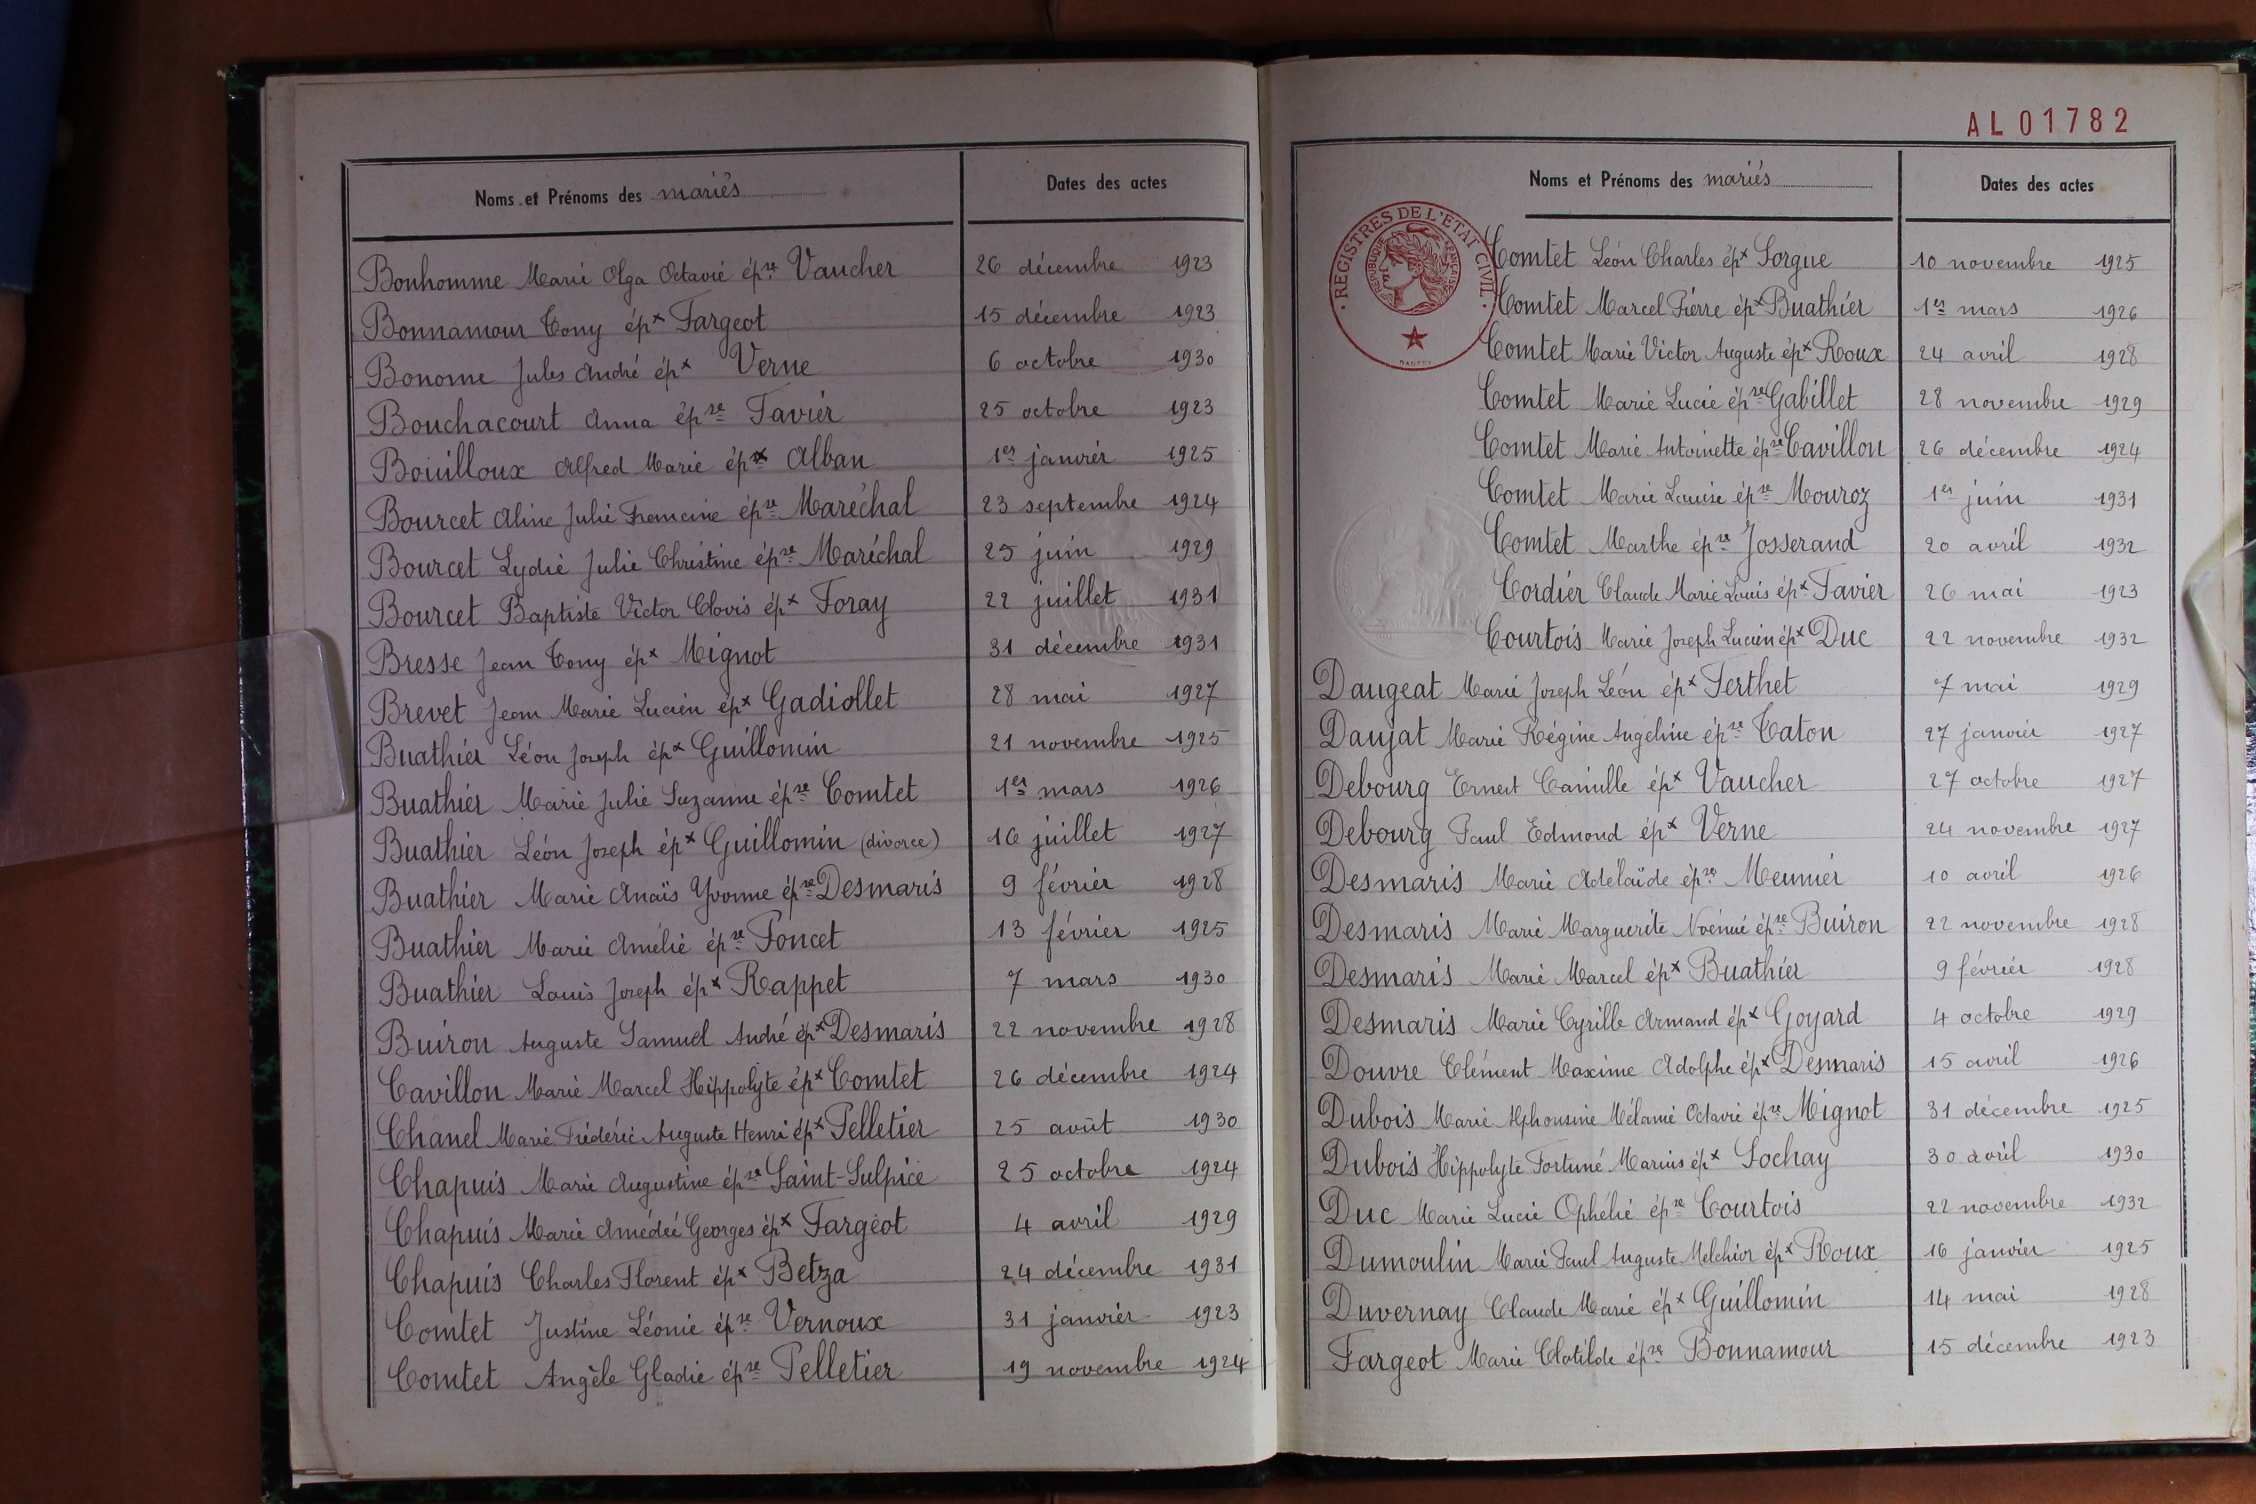 Noms et Prénoms des mariés Dates des actes
Bonhomme Marie Olga Octavie épse Vaucher 26 décembre 1923
Bonnamour Tony épx Fargeot 15 décembre 1923
Bonome Jules André épx Verne 6 octobre 1930
Bouchacourt Anna épse Favier 25 octobre 1923
Bouilloux Alfred Marie épx Alban 1er janvier 1925
Bourcet Aline Julie Francine épse Maréchal 23 septembre 1924
Bourcet Lydie Julie Christine épse Maréchal 25 juin 1929
Bourcet Baptiste Victor Clovis épx Foray 22 juillet 1931
Bresse Jean Tony épx Mignot 31 décembre 1931
Brevet Jean Marie Lucien épx Gadiollet 28 mai 1927
Buathier Léon Joseph épx Guillomin 21 novembre 1925
Buathier Marie Julie Suzanne épse Comtet 1er mars 1926
Buathier Léon Joseph épx Guillomin (divorce) 16 juillet 1927
Buathier Marie Anaïs Yvonne épse Desmaris 9 février 1928
Buathier Marie Amélie épse Poncet 13 février 1925
Buathier Louis Joseph épx Rappet 7 mars 1930
Buiron Auguste Samuel André épx Desmaris 22 novembre 1928
Cavillon Marie Marcel Hippolyte épx Comtet 26 décembre 1924
Chanel Marie Frédéric Auguste Henri épx Pelletier 25 août 1930
Chapuis Marie Augustine épse Saint-Sulpice 25 octobre 1924
Chapuis Marie Amédée Georges épx Fargeot 4 avril 1929
Chapuis Charles Florent épx Betza 24 décembre 1931
Comtet Justine Léonie épse Vernoux 31 janvier 1923
Comtet Angèle Gladie épse Pelletier 19 novembre 1924
AL01782
Noms et Prénoms des mariés Dates des actes
REGISTRES DE L'ETAT CIVIL
REPUBLIQUE FRANÇAISE
Comtet Léon Charles épx Sorgue 10 novembre 1925
Comtet Marcel Pierre épx Buathier 1er mars 1926
Comtet Marie Victor Auguste épx Roux 24 avril 1928
Comtet Marie Lucie épse Gabillet 28 novembre 1929
Comtet Marie Antoinette épse Cavillon 26 décembre 1924
Comtet Marie Louise épse Mouroz 1er juin 1931
Comtet Marthe épse Josserand 20 avril 1932
Cordier Claude Marie Louis épx Favier 26 mai 1923
Courtois Marie Joseph Lucien épx Duc 22 novembre 1932
Daugeat Marie Joseph Léon épx Ferthet 7 mai 1929
Daujat Marie Régine Angeline épse Taton 27 janvier 1927
Debourg Ernest Camille épx Vaucher 27 octobre 1927
Debourg Paul Edmond épx Verne 24 novembre 1927
Desmaris Marie Adélaïde épse Meunier 10 avril 1926
Desmaris Marie Marguerite Noémie épse Buiron 22 novembre 1928
Desmaris Marie Marcel épx Buathier 9 février 1928
Desmaris Marie Cyrille Armand épx Goyard 4 octobre 1929
Douvre Clément Maxime Adolphe épx Desmaris 15 avril 1926
Dubois Marie Alphonsine Mélanie Octavie épse Mignot 31 décembre 1925
Dubois Hippolyte Fortuné Marius épx Sochay 30 avril 1930
Duc Marie Lucie Ophélie épse Courtois 22 novembre 1932
Dumoulin Marie Paul Auguste Melchior épx Roux 16 janvier 1925
Duvernay Claude Marie épx Guillomin 14 mai 1928
Fargeot Marie Clotilde épse Bonnamour 15 décembre 1923